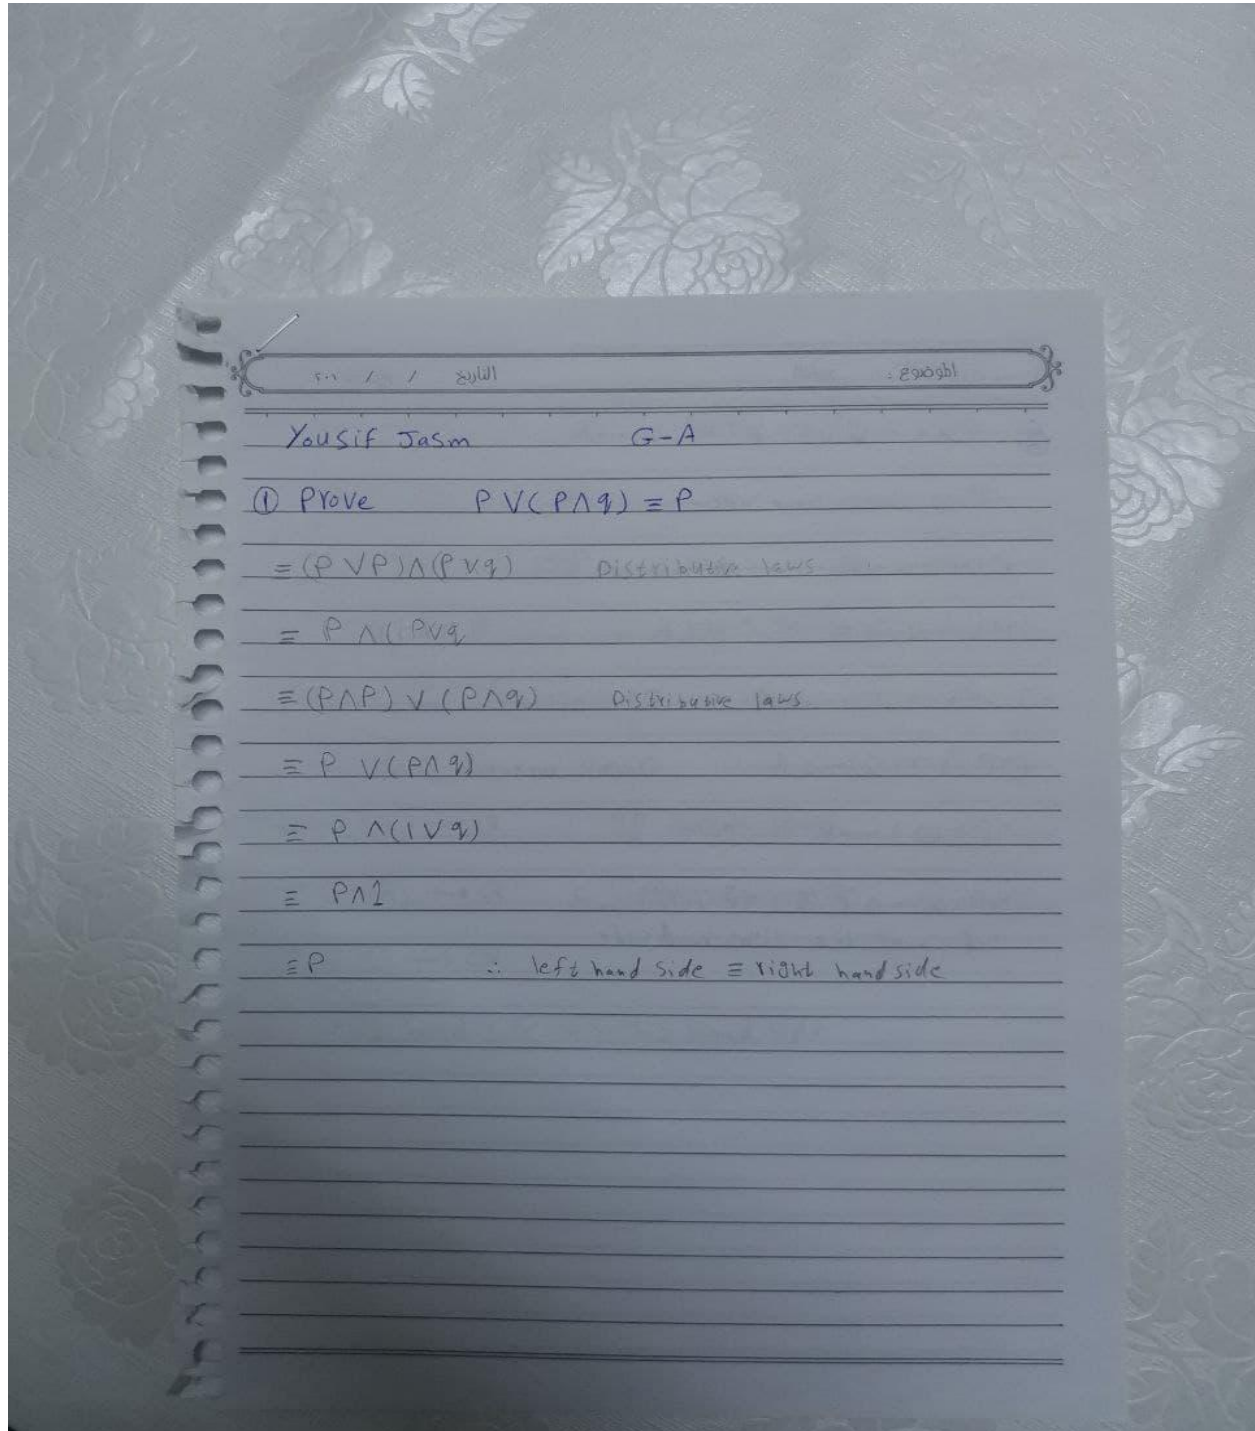 الموضوع : التاريخ / / ٢٠١
Yousif Jasm G-A
① Prove P V (P ∧ q) ≡ P
≡ (P V P) ∧ (P V q) Distributive laws
≡ P ∧ ( P V q
≡ (P ∧ P) V (P ∧ q) Distributive laws
≡ P V (P ∧ q)
≡ P ∧ (1 V q)
≡ P ∧ 1
≡ P ∴ left hand side ≡ right hand side